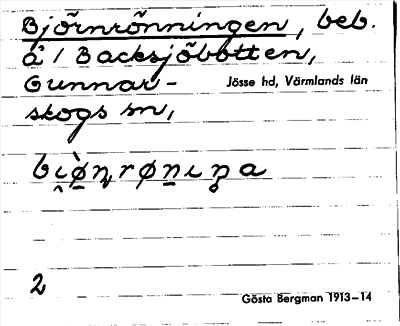 Björnrönningen, beb.
å 1 Backsjöbotten,
Gunnar-
Jösse hd, Värmlands län
skogs sn,
2
Gösta Bergman 1913–14